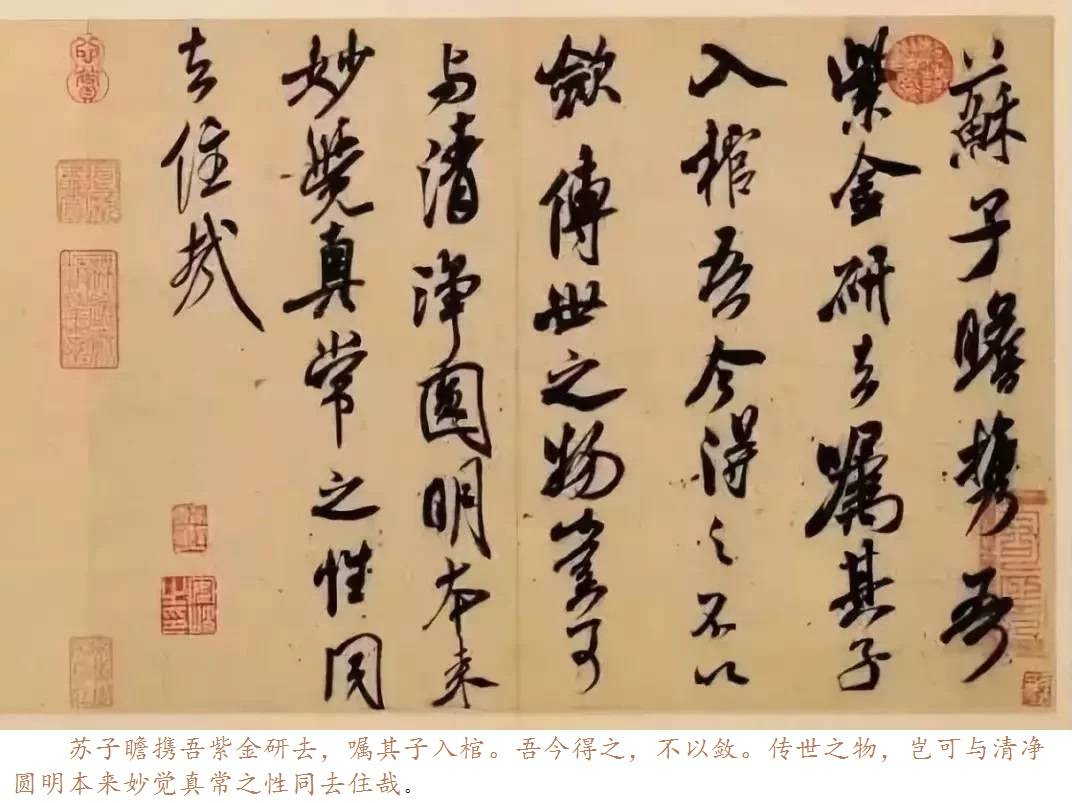 蘇子瞻携吾
紫金研去嘱其子
入棺吾今得之不以
斂傳世之物豈可
与清淨圓明本来
妙覺真常之性同
去住哉
苏子瞻携吾紫金研去，嘱其子入棺。吾今得之，不以敛。传世之物，岂可与清净
圆明本来妙觉真常之性同去住哉。